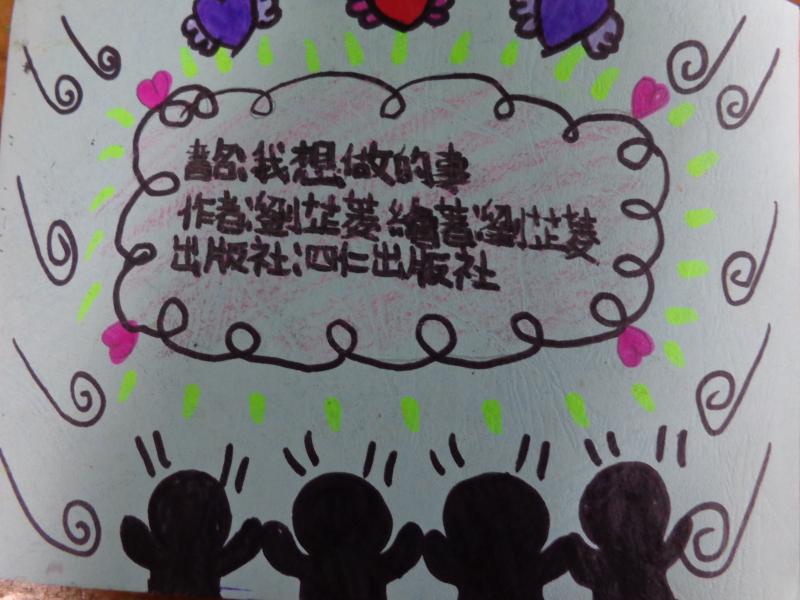 書名:我想做的事
作者:劉芷菱 繪著:劉芷菱
出版社:四仁出版社